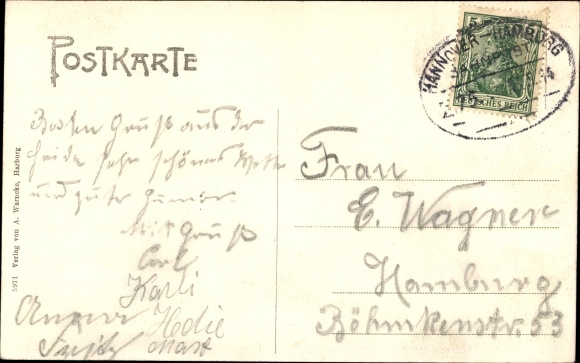 POSTKARTE
HANNOVER HAMBURG
BAHNPOST
DEUTSCHES REICH
Besten Gruß aus der
Heide sehr schönes Wetter
und gute Humor.
Mit Gruß
Carl
Karli
Hedie
Frau
E. Wagner
Hamburg
Böhmkenstr. 53
5971 Verlag von A. Warncke, Harburg